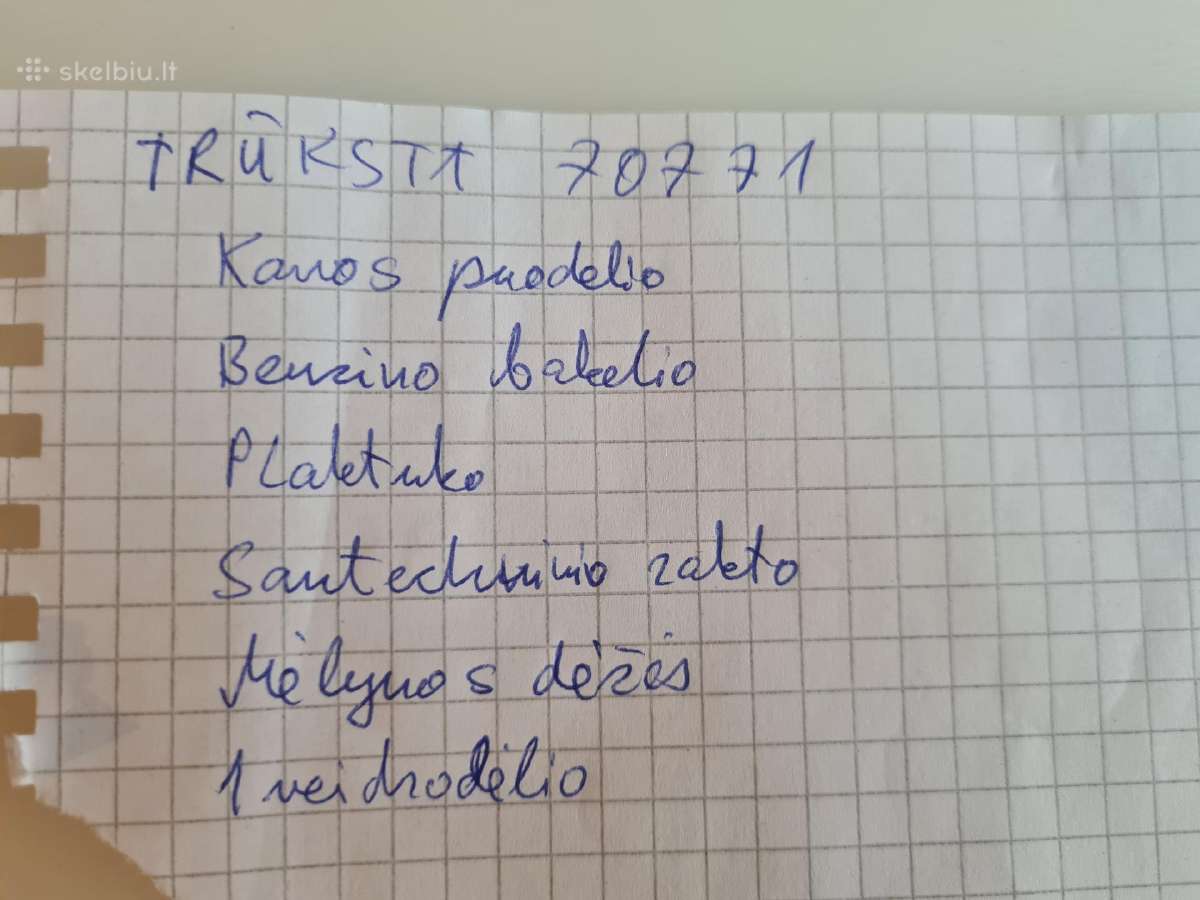 skelbiu.lt
TRŪKSTA 70771
Kavos puodelio
Benzino bakelio
Plaktuko
Santechninio rakto
Mėlynos dėžės
1 veidrodėlio